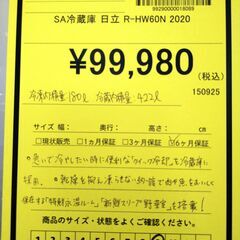 99290000018089
SA冷蔵庫 日立 R-HW60N 2020
¥99,980
(税込)
冷凍内容量180L 冷蔵内容量422L
150925
サイズ 幅: 奥行き: 高さ: cm
□現状販売 □1ヵ月保証 □3ヶ月保証 6ヶ月保証
急いで冷やしたい時に便利な「クイック冷却」を冷蔵に
採用。乾燥を抑え凍らない約 で肉や魚をおいしく
保存する「特鮮氷温ルーム」「新鮮スリープ野菜室」を搭載!
商品のサイズ・状態をよくご確認ください。